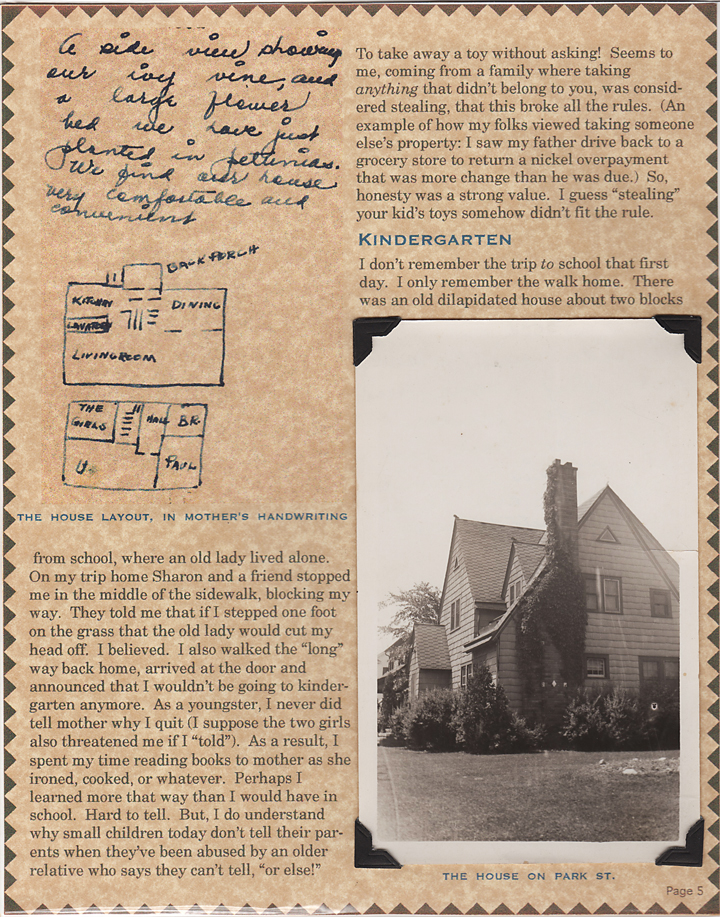 A side view showing
our ivy vine, and
a large flower
bed we have just
planted in pettunias.
We find our house
very comfortable and
convenient
BACK PORCH
KITCHEN
DINING
LAVATORY
LIVINGROOM
THE
GIRLS
HALL
BR.
PAUL
THE HOUSE LAYOUT, IN MOTHER'S HANDWRITING
To take away a toy without asking!  Seems to
me, coming from a family where taking
anything that didn't belong to you, was consid-
ered stealing, that this broke all the rules.  (An
example of how my folks viewed taking someone
else's property: I saw my father drive back to a
grocery store to return a nickel overpayment
that was more change than he was due.)  So,
honesty was a strong value.  I guess “stealing”
your kid's toys somehow didn't fit the rule.
KINDERGARTEN
I don't remember the trip to school that first
day.  I only remember the walk home.  There
was an old dilapidated house about two blocks
from school, where an old lady lived alone.
On my trip home Sharon and a friend stopped
me in the middle of the sidewalk, blocking my
way.  They told me that if I stepped one foot
on the grass that the old lady would cut my
head off.  I believed.  I also walked the “long”
way back home, arrived at the door and
announced that I wouldn't be going to kinder-
garten anymore.  As a youngster, I never did
tell mother why I quit (I suppose the two girls
also threatened me if I “told”).  As a result, I
spent my time reading books to mother as she
ironed, cooked, or whatever.  Perhaps I
learned more that way than I would have in
school.  Hard to tell.  But, I do understand
why small children today don't tell their par-
ents when they've been abused by an older
relative who says they can't tell, “or else!”
THE HOUSE ON PARK ST.
Page 5